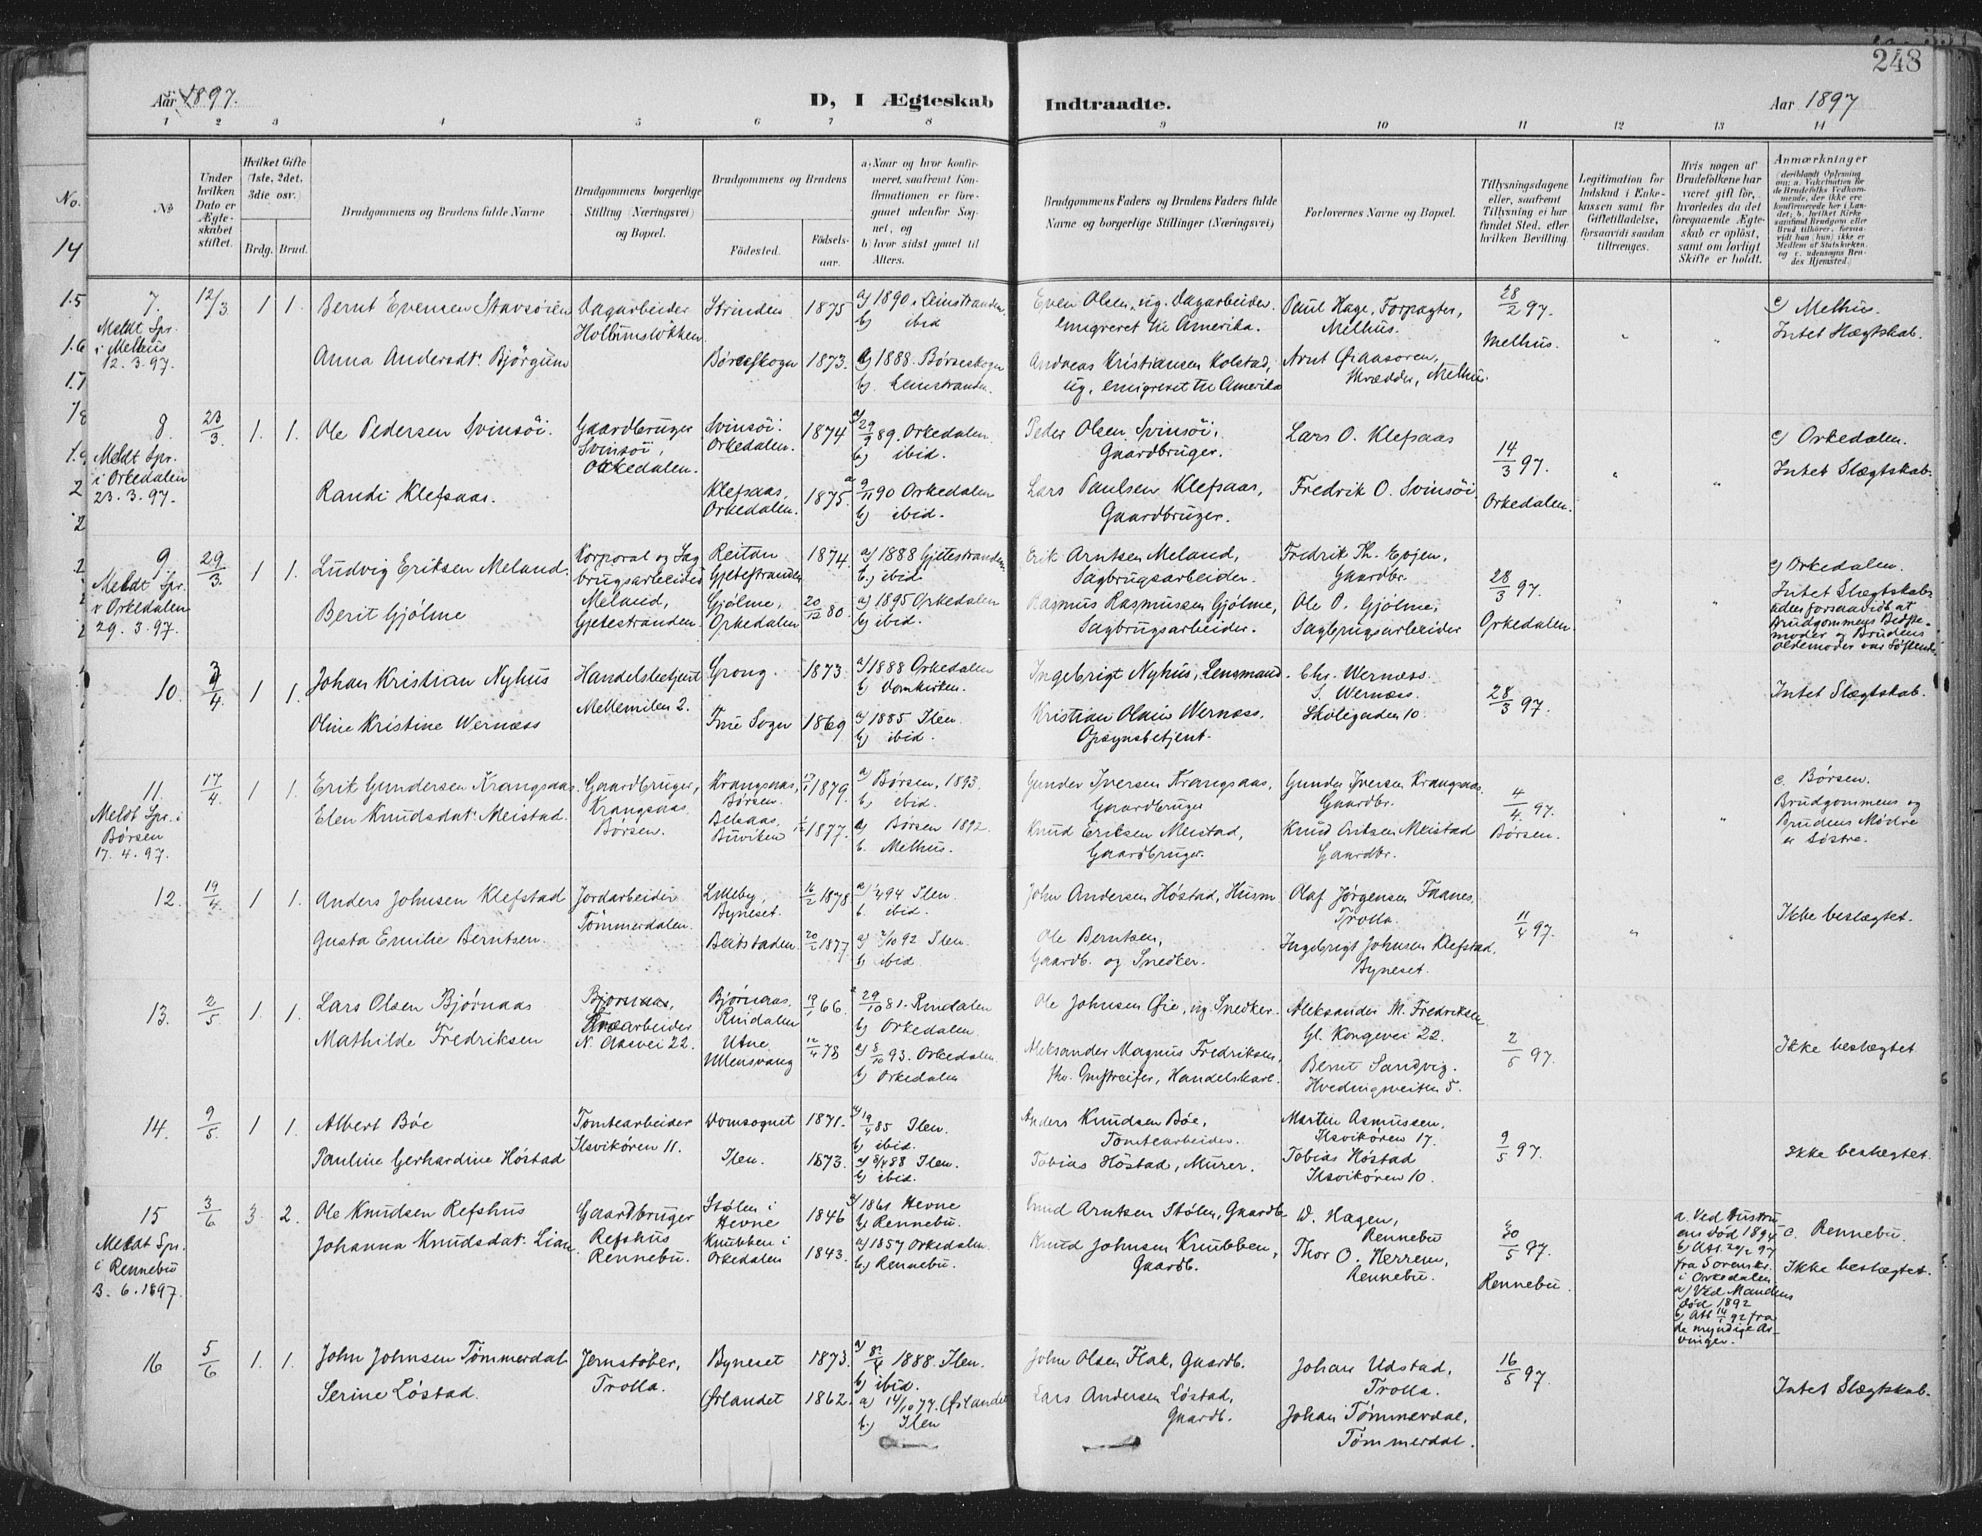 248
Aar 1897.
D, I Ægteskab Indtraadte.
Aar 1897
1 2 3 4 5 6 7 8 9 10 11 12 13 14
No.
14
15
16
17
18
No
Under hvilken Dato er Ægteskabet stiftet.
Hvilket Gifte (1ste, 2det, 3die osv.)
Brdg. Brud.
Brudgommens og Brudens fulde Navne
Brudgommens borgerlige Stilling (Næringsvei) og Bopæl.
Brudgommens og Brudens
Födested.
Födselsaar.
a) Naar og hvor konfirmeret, saafremt Konfirmationen er foregaaet udenfor Sognet, og
b) hvor sidst gaaet til Alters.
Brudgommens Faders og Brudens Faders fulde Navne og borgerlige Stillinger (Næringsvei)
Forlovernes Navne og Bopæl.
Tillysningsdagene eller, saafremt Tillysning ei har fundet Sted, efter hvilken Bevilling.
Legitimation for Indskud i Enkekassen samt for Giftetilladelse, forsaavidt saadan tiltrænges.
Hvis nogen af Brudefolkene har været gift før, hvoriedes da det foregaaende Ægteskab er oplöst, samt om lovligt Skifte er holdt.
Anmærkninger
7. 12/3 1 1.
Meldt Spr. i Melhus 12.3.97.
Bernt Evensen Stavsöien
Dagarbeider
Strinden 1875
a) 1890, Leinstranden
b) ibid
Even Olsen, ug. Dagarbeider. emigreret til Amerika.
Paul Hage, Forpagter, Melhus.
28/2 97. Melhus.
c) Melhus. Intet Slægtskab.
Anna Andersdt. Bjørgum
Børseskogn 1873.
a) 1888. Børseskogn
b) Leinstranden.
Andreas Kristiansen Kolstad, ug. emigreret til Amerika
8. 23/3. 1. 1.
Meldt Spr. i Orkedalen 23.3.97.
Ole Pedersen Svinsöi.
Gaardbruger Svinsöi, Orkedalen.
Svinsöi. Orkedalen. 1874
a) 29/9 89. Orkedalen.
b) ibid.
Peder Olsen Svinsöi, Gaardbruger.
Lars O. Klefsaas
14/3 97. Orkedalen.
c) Orkedalen. Intet Slægtskab.
Randi Klefsaas.
Klefsaas, Orkedalen. 1875
a) 9/11 90 Orkedalen
b) ibid.
Lars Paulsen Klefsaas, Gaardbruger.
Fredrik O. Svinsöi
9. 29/3. 1 1.
Meldt Spr. v Orkedalen 29.3.97.
Ludvig Eriksen Meland.
Korporal og Sagbrugsarbeider Meland, Gjetestranden.
Reitan Gjetestranden 1874.
a) 1888 Gjetestranden.
b) ibid
Erik Arntsen Meland, Sagbrugsarbeider.
Fredrik Th. Evjen, Gaardbr.
28/3 97. Orkedalen.
c) Orkedalen. Intet Slægtskab, uden forsaavidt at Brudgommens Bedstemoder og Brudens oldemoder var Søskende
Berit Gjölme
Gjölme, Orkedalen 20/12 80
a) 1895 Orkedalen
b) ibid.
Rasmus Rasmussen Gjølme, Sagbrugsarbeider.
Ole O. Gjølme, Sagbrugsarbeider
10. 3/4 1 1.
Johan Kristian Nyhus
Handelsbetjent Mellemilen 2.
Grong. 1873.
a) 1888 Orkedalen
b) Domkirken.
Ingebrigt Nyhus, Lensmand.
Chr. Wernæss. S. Wernæss. Skolegaden 10.
28/3 97.
Intet Slægtskab.
Oline Kristine Wernæss
Frue Sogn 1869
a) 1885 Ilen.
b) ibid.
Kristian Olaus Wernæss. Opsynsbetjent.
11. 17/4. 1 1.
Meldt Spr. i Børsen 17.4.97.
Erik Gundersen Krangsaas.
Gaardbruger, Krangsaas. Børsen.
Krangsaas, Børsen. 1879
a) Børsen, 1893.
b. ibid.
Gunder Iversen Krangsaas, Gaardbruger
Gunder Iversen Krangsaas. Gaardbr.
4/4. 97. Børsen.
c. Børsen. Brudgommens og Brudens Mødre er Søstre.
Elen Knudsdat. Meistad.
Belsaas, Buviken 1877.
a) Børsen 1892.
b. Melhus.
Knud Eriksen Meistad, Gaardbruger.
Knud Eritsen Meistad Gaardbr.
12. 19/4. 1 1
Anders Johnsen Klefstad
Jordarbeider Tömmerdalen.
Lilleby, Byneset. 16/2 1878
a) 94 Ilen.
b. ibid.
John Andersen Høstad, Husm
Olaf Jørgensen Faanes. Trolla.
11/4 97.
Ikke beslægtet.
Gusta Emilie Berntsen.
Beitstaden 1877
a) 2/10 92 Ilen.
b ibid
Ole Berntsen, Gaardb. og Snedker.
Ingebrigt Johnsen Klefstad, Byneset.
13. 2/5 1. 1.
Lars Olsen Bjørnaas
Bjørnaas, Træarbeider N. Aasvei 22.
Bjørnaas. Rindalen 19/1 66.
29/10 81. Rindalen
b) Orkedalen.
Ole Johnsen Øie, ug. Snedker.
Aleksander M. Fredriksen Gl. Kongevei 22.
2/5 97.
Ikke beslægtet
Mathilde Fredriksen
Utne, Ullensvang 12/4 78
a) 8/10 93. Orkedalen
b) Orkedalen
Aleksander Magnus Fredriksen, Handelskarl.
Bernt Sandvig. Hvedingsveiten 5.
14. 9/5. 1 1.
Albert Böe
Tomtearbeider Ilsvikören 11.
Domsognet 1871.
a) 19/4 85 Ilen.
b) ibid.
Anders Knudsen Bøe, Tomtearbeider.
Martin Asmussen, Ilsvikören 17.
9/5 97.
Ikke beslægtet.
Pauline Gerhardine Höstad
Ilen. 1873.
a) 8/4 88 Ilen.
b) ibid.
Tobias Höstad, Murer.
Tobias Höstad Ilsvikören 10.
15 3/6 3. 2.
Meldt Spr. i Rennebu 3.6.1897.
Ole Knudsen Refshus
Gaardbruger Refshus Rennebu.
Stølen i Hevne 1846
a) 1861 Hevne
b) Rennebu.
Knud Arntsen Stølen, Gaardb
D. Hagen, Rennebu
30/5 97. Rennebu
a. Ved Hustruens død 1894
b) Att. 20/2 97 fra Sorenskr. i Orkedalen
a) Ved Mandens død 1892
b) Att 14/1 92 fra de myndige Arvinger.
c. Rennebu. Ikke beslægtet.
Johanna Knudsdat. Lian
Knubben i Orkedalen 1843.
a) 1857 Orkedalen.
b) Rennebu.
Knud Johnsen Knubben, Gaardb.
Thor O. Herrem, Rennebu.
16 5/6 1. 1.
John Johnsen Tømmerdal
Jernstøber, Trolla.
Byneset 1873.
a) 8/4 1888. Ilen.
b) ibid.
John Olsen Flak, Gaardb.
Johan Udstad, Trolla.
16/5 97.
Intet Slægtskab.
Serine Løstad.
Ørlandet 1862.
a) 14/10 77 (Ørlandet
b.) Ilen
Lars Andersen Löstad, Gaardb.
Johan Tømmerdal, Tømmerdal.